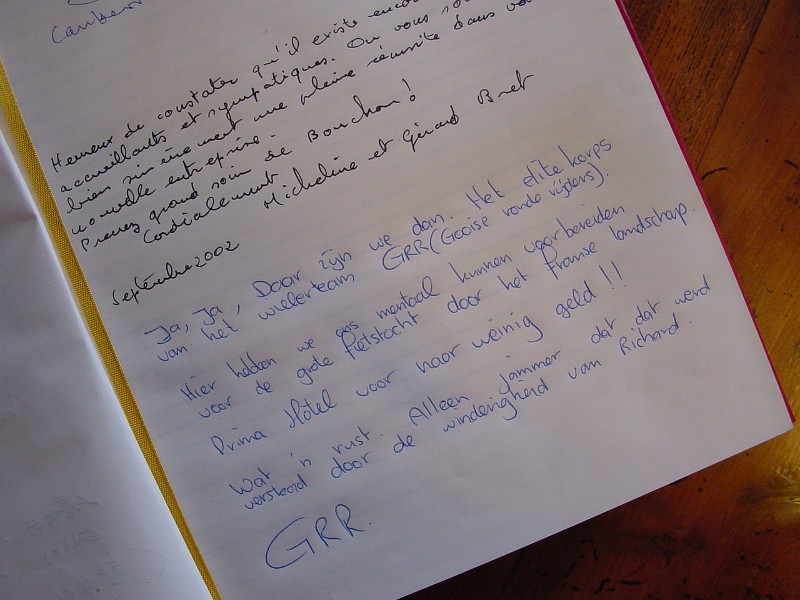 Canberr
Heureux de constater qu'il existe enco
accueillants et sympatiques. On vous so
bien sincèrement une pleine réussite dans vo
nouvelle entreprise.
Prenez grand soin de Bouchon!
Cordialement
Micheline et Gérard Bret
Septembre 2002
Ja, Ja, Daar zijn we dan. Het elite korps
van het wielerteam GRR (Gooise ronde rijders).
Hier hebben we ons mentaal kunnen voorbereiden
voor de grote fietstocht door het Franse landschap.
Prima Hotel voor naar weinig geld!!
Wat 'n rust. Alleen jammer dat dat werd
verstoord door de winderigheid van Richard.
GRR.